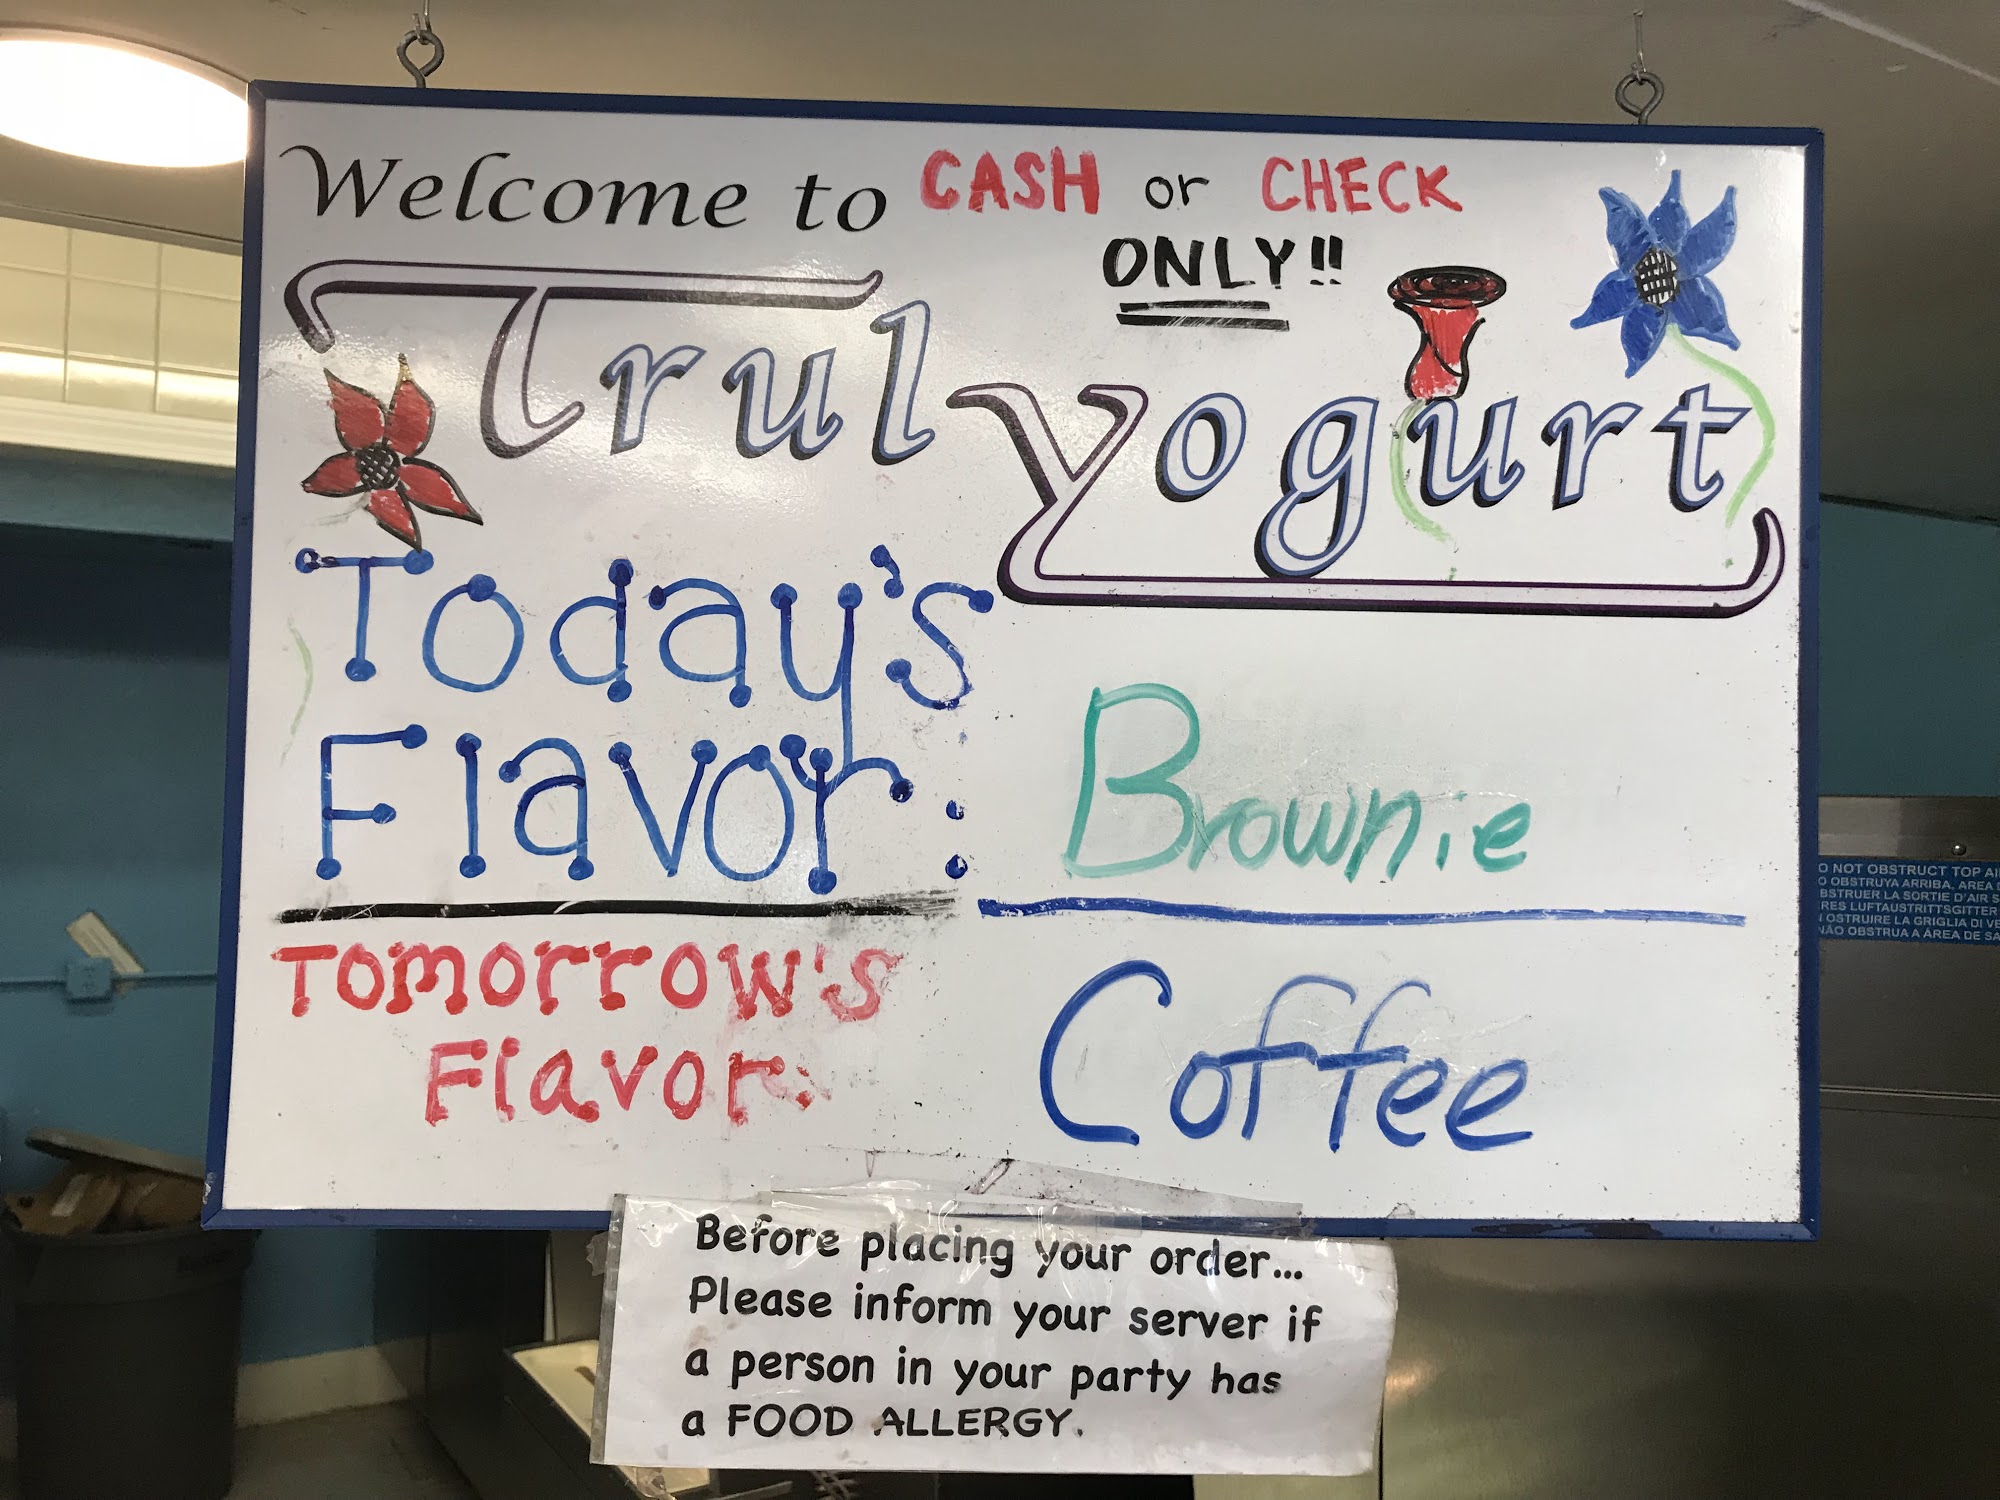 Welcome to CASH or CHECK
ONLY!!
Truly Yogurt
Today's
Flavor: Brownie
Tomorrow's
Flavor: Coffee
Before placing your order...
Please inform your server if
a person in your party has
a FOOD ALLERGY.
O NOT OBSTRUCT TOP AI
O OBSTRUYA ARRIBA, AREA D
BSTRUER LA SORTIE D'AIR S
RES LUFTAUSTRITTSGITTER
OSTRUIRE LA GRIGLIA DI VE
NÃO OBSTRUA A ÁREA DE SA